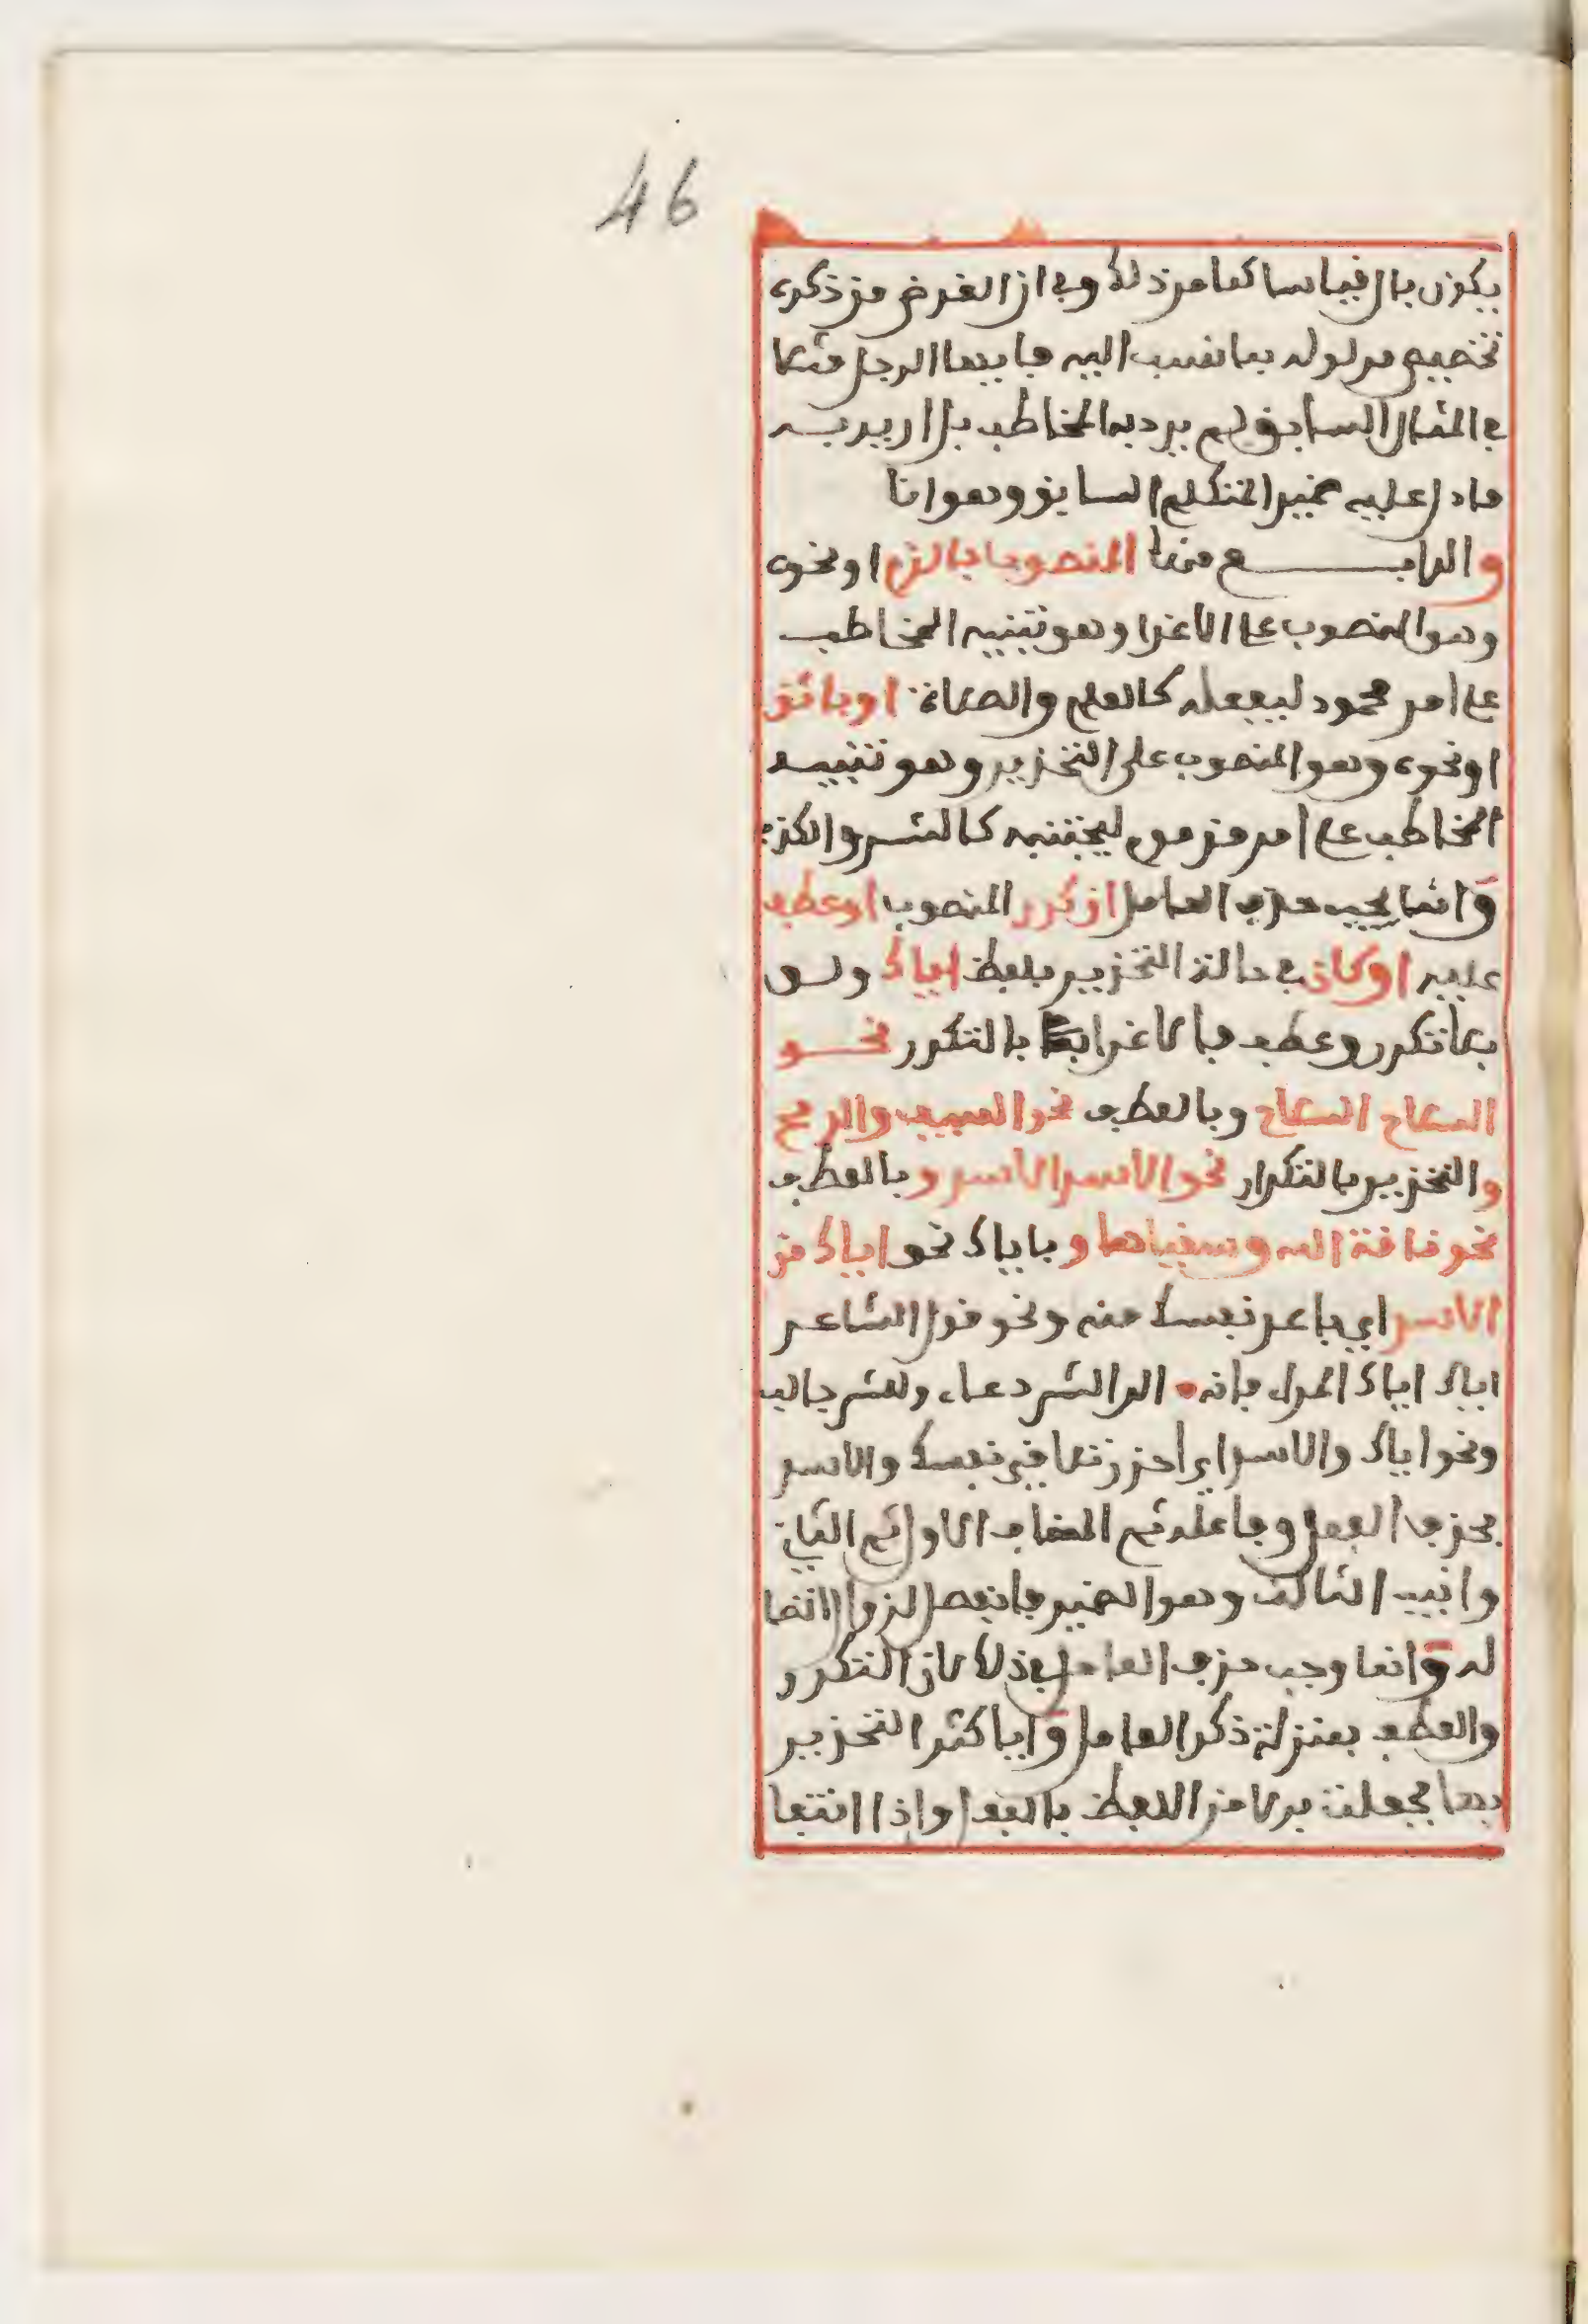 46
يكون بال قياسا كما مر ذلك وفي ان الغرض من ذكره
تخصيص مدلوله بما نسب اليه فايها الرجل مثلا
في المثال السابق لم يرد به المخاطب بل اريد به
ما دل عليه ضمير المتكلم السابق وهو انا
والرابع منها المنصوب بالزم او نحوه
وهو المنصوب على الاغرا وهو تنبيه المخاطب
على امر محمود ليفعله كالعلم والصلاة او باتق
او نحوه وهو المنصوب على التحذير وهو تنبيه
المخاطب على امر مذموم ليجتنبه كالشر والكذب
وانما يجب حذف العامل ان كرر المنصوب او عطف
عليه او كان في حالة التحذير بلفظ اياك ولو
بلا تكرر وعطف فالاغرا بالتكرر نحو
السلاح السلاح وبالعطف نحو السيف والرمح
والتحذير بالتكرار نحو الاسد الاسد وبالعطف
نحو ناقة الله وسقياها وباياك نحو اياك من
الاسد اي باعد نفسك منه ونحو قول الشاعر
اياك اياك المراء فانه • الى الشر دعاء وللشر جالب
ونحو اياك والاسد اي احذر تلاقي نفسك والاسد
فحذف الفعل وفاعله ثم المضاف الاول ثم الثاني
وانيب الثالث وهو الضمير فانفصل لزوال اتصا
له وانما وجب حذف العامل في ذلك لان التكرر
والعطف بمنزلة ذكر العامل وايا كثر التحذير
بها فجعلت بدلا من اللفظ بالفعل واذا انتفا